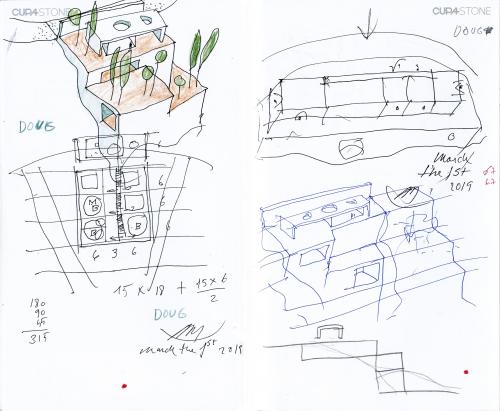 CUR4STONE
DOUG
6
6
6
M
B
B
B
6 3 6
15 × 18 + 15 × 6
2
180
90
45
315
DOUG
March the 1st 2019
CUR4STONE
DOUG
March
the 1st
2019